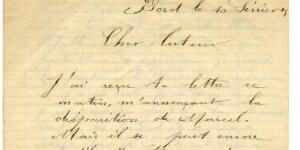 Bord le 10
Cher
J'ai reçu ta lettre ce
matin, m'annonçant la
disparition de Marcel.
Mais il se peut encore